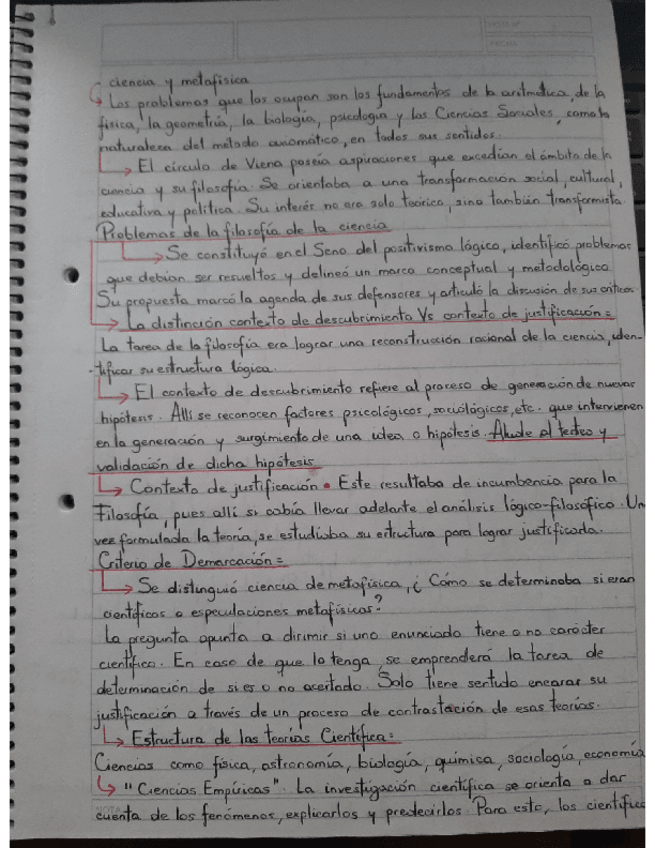 ciencia y metafísica
Los problemas que los ocupan son los fundamentos de la aritmética, de la
física, la geometría, la biología, psicología y las Ciencias Sociales, como la
naturaleza del método axiomático, en todos sus sentidos.
El círculo de Viena poseía aspiraciones que excedían el ámbito de la
ciencia y su filosofía. Se orientaba a una transformación social, cultural,
educativa y política. Su interés no era solo teórico, sino también transformista.
Problemas de la filosofía de la ciencia
Se constituyó en el Seno del positivismo lógico, identificó problemas
que debían ser resueltos y delineó un marco conceptual y metodológico
Su propuesta marcó la agenda de sus defensores y articuló la discusión de sus críticos
La distinción contexto de descubrimiento Vs contexto de justificación:
La tarea de la filosofía era lograr una reconstrucción racional de la ciencia, iden-
-tificar su estructura lógica.
El contexto de descubrimiento refiere al proceso de generación de nuevas
hipótesis. Allí se reconocen factores psicológicos, sociológicos, etc. que intervienen
en la generación y surgimiento de una idea o hipótesis. Alude al testeo y
validación de dicha hipótesis
Contexto de justificación. Este resultaba de incumbencia para la
Filosofía, pues allí si cabía llevar adelante el análisis lógico-filosófico. Un
vez formulada la teoría, se estudiaba su estructura para lograr justificada.
Criterio de Demarcación:
Se distinguió ciencia de metafísica, ¿Cómo se determinaba si eran
científicos o especulaciones metafísicas?
La pregunta apunta a dirimir si uno enunciado tiene o no carácter
científico. En caso de que lo tenga, se emprenderá la tarea de
determinación de si es o no acertado. Solo tiene sentido encarar su
justificación a través de un proceso de contrastación de esas teorías.
Estructura de las teorías Científica:
Ciencias como física, astronomía, biología, química, sociología, economía
"Ciencias Empíricas". La investigación científica se orienta a dar
cuenta de los fenómenos, explicarlos y predecirlos. Para esto, los científico